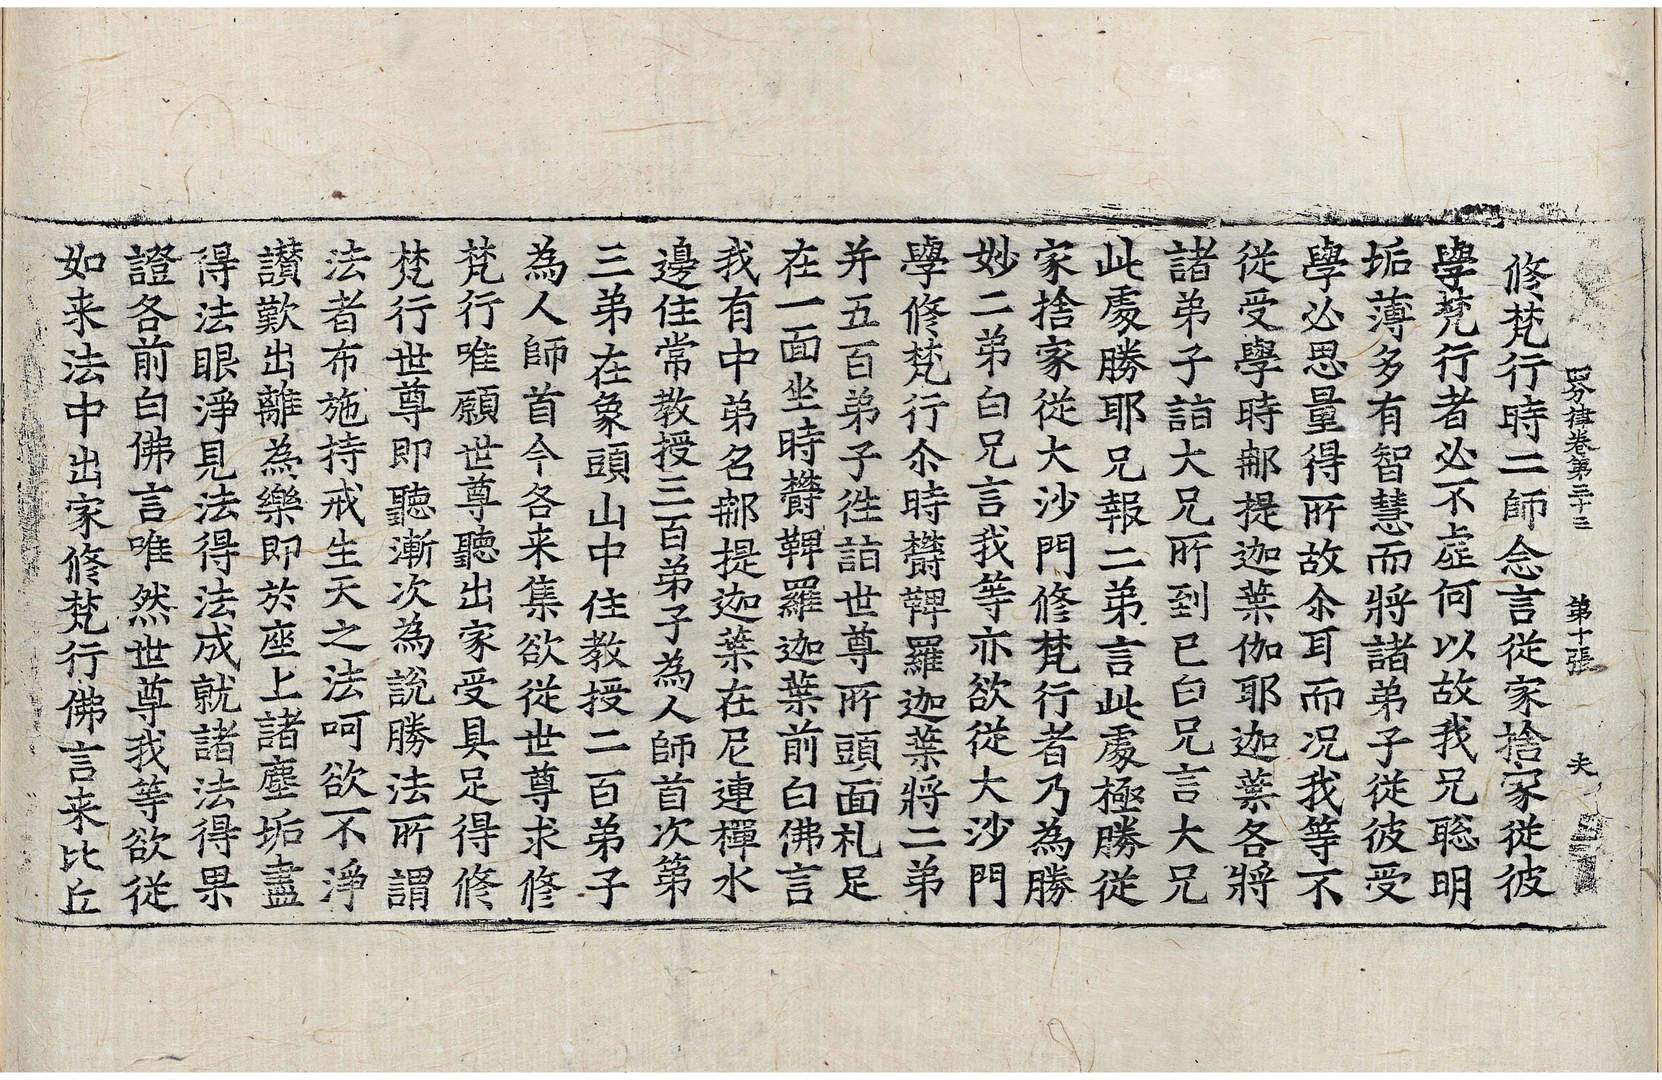 四分律卷第三十三　第十張　夫
修梵行時二師念言從家捨家從彼
學梵行者必不虛何以故我兄聡明
垢薄多有智慧而將諸弟子從彼受
學必思量得所故尒耳而况我等不
從受學時𨙻提迦葉伽耶迦葉各將
諸弟子詣大兄所到已白兄言大兄
此處勝耶兄報二弟言此處極勝從
家捨家從大沙門修梵行者乃為勝
妙二弟白兄言我等亦欲從大沙門
學修梵行尒時欝鞞羅迦葉將二弟
并五百弟子徃詣世尊所頭面礼足
在一面坐時欝鞞羅迦葉前白佛言
我有中弟名𨙻提迦葉在尼連禪水
邊住常教授三百弟子為人師首次第
三弟在象頭山中住教授二百弟子
為人師首今各来集欲從世尊求修
梵行唯願世尊聽出家受具足得修
梵行世尊即聽漸次為說勝法所謂
法者布施持戒生天之法呵欲不淨
讃歎出離為樂即於座上諸塵垢盡
得法眼淨見法得法成就諸法得果
證各前白佛言唯然世尊我等欲從
如来法中出家修梵行佛言来比丘